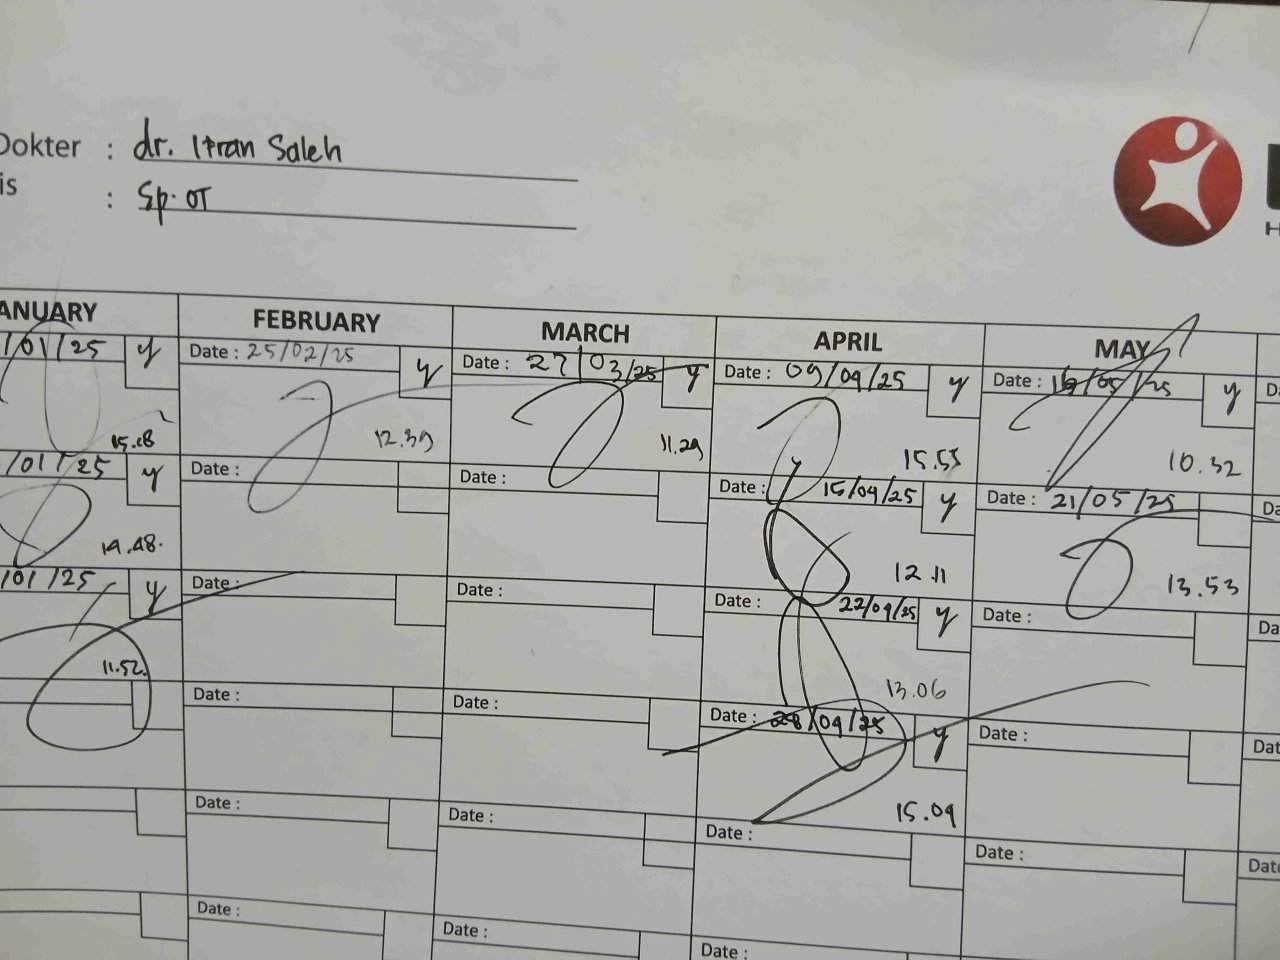 Dokter : dr. Ifran Saleh
is : Sp. OT
ANUARY FEBRUARY MARCH APRIL MAY
/01/25 y Date : 25/02/25 y Date : 27/03/25 y Date : 09/04/25 y Date : /05/25 y
15.18 12.39 11.29 15.55 10.32
/01/25 y Date : Date : Date : 15/04/25 y Date : 21/05/25 Da
14.48. 12.11 13.53
/01/25 y Date : Date : Date : 22/04/25 y Date : Da
11.52. 13.06
Date : Date : Date : 28/04/25 y Date : Dat
15.09
Date : Date : Date : Date : Date
Date : Date : Date :